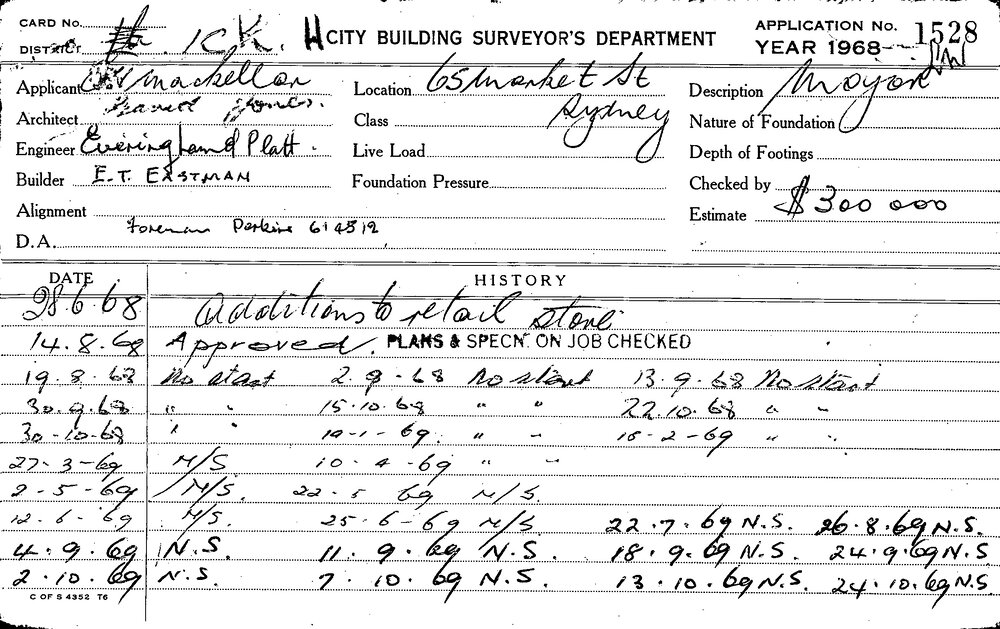 CARD No.
DISTRICT ICK. H CITY BUILDING SURVEYOR'S DEPARTMENT APPLICATION No. 1528
YEAR 1968
Applicant Mackellar Location 65 Market St Description Mayor
Architect David Jones. Class Sydney Nature of Foundation
Engineer Everingham & Platt. Live Load Depth of Footings
Builder E.T. EASTMAN Foundation Pressure Checked by
Alignment Estimate $300 000
D.A. Foreman Perkins 614512
DATE HISTORY
28.6.68 Additions to retail store
14.8.68 Approved. PLANS & SPECN. ON JOB CHECKED
19.8.68 No start 2.9.68 No start 13.9.68 No start
30.9.68 " " 15.10.68 " " 22.10.68 " "
30-10-68 " " -1-69. " " -2-69 " "
27-3-69 N/S 10.4-69 " "
2-5-69 N/S. 22-5 69 N/S.
12-6-69 N/S. 25-6-69 N/S 22.7.69 N.S. 26.8.69 N.S.
4.9.69 N.S. 11.9.69 N.S. 18.9.69 N.S. 24.9.69 N.S
2.10.69 N.S. 7.10.69 N.S. 13.10.69 N.S. 24.10.69 N.S.
C OF S 4352 T6